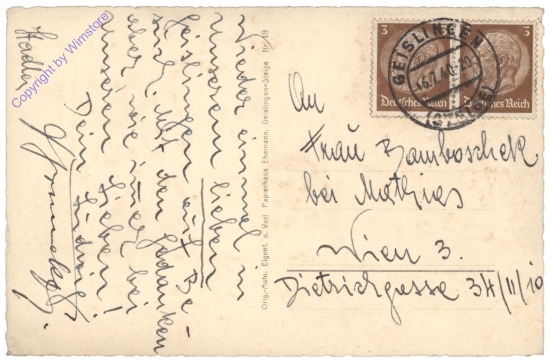 Wieder einmal in
unserem lieben
Geislingen auf Be-
such. Mit den Gedanken
aber wie immer bei
unseren Lieben!
Dein
Stadler
Copyright by Wimstore
Orig.-Aufn. Eigent. u. Verl. Papierhaus Ehemann, Geislingen-Steige Nr. 19
3 3
Deutsches Reich Deutsches Reich
GEISLINGEN
16.7.40.-20
(STEIGE)
An
Frau Bamboschek
bei Mathias
Wien 3.
Dietrichgasse 34/II/10